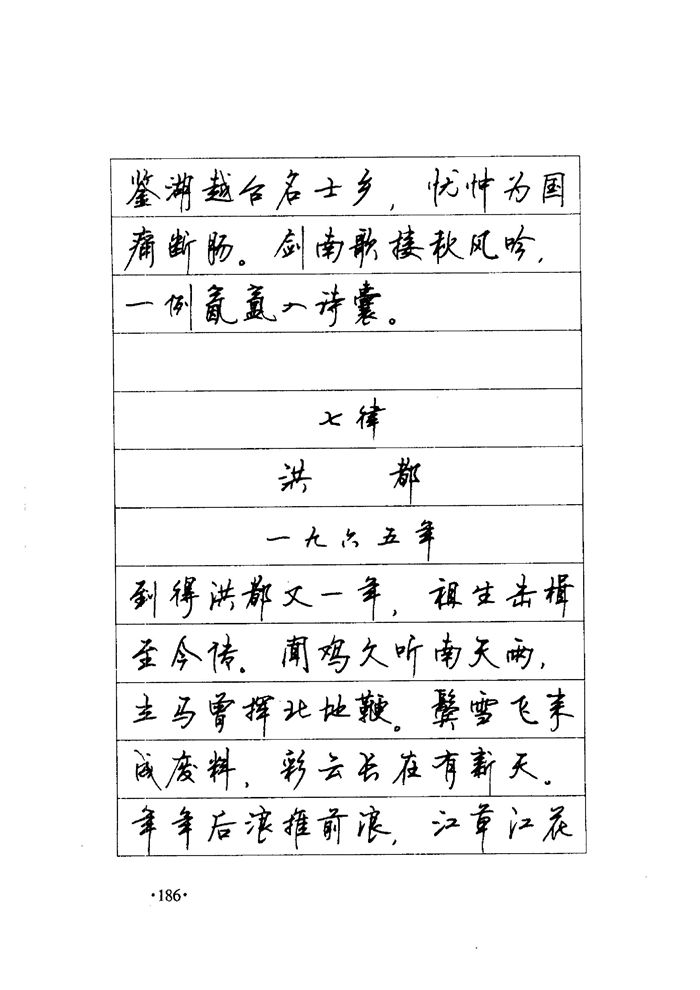 鉴湖越台名士乡，忧忡为国
痛断肠。剑南歌接秋风吟，
一例氤氲入诗囊。
七律
洪 都
一九六五年
到得洪都又一年，祖生击楫
至今传。闻鸡久听南天雨，
立马曾挥北地鞭。鬓雪飞来
成废料，彩云长在有新天。
年年后浪推前浪，江草江花
·186·